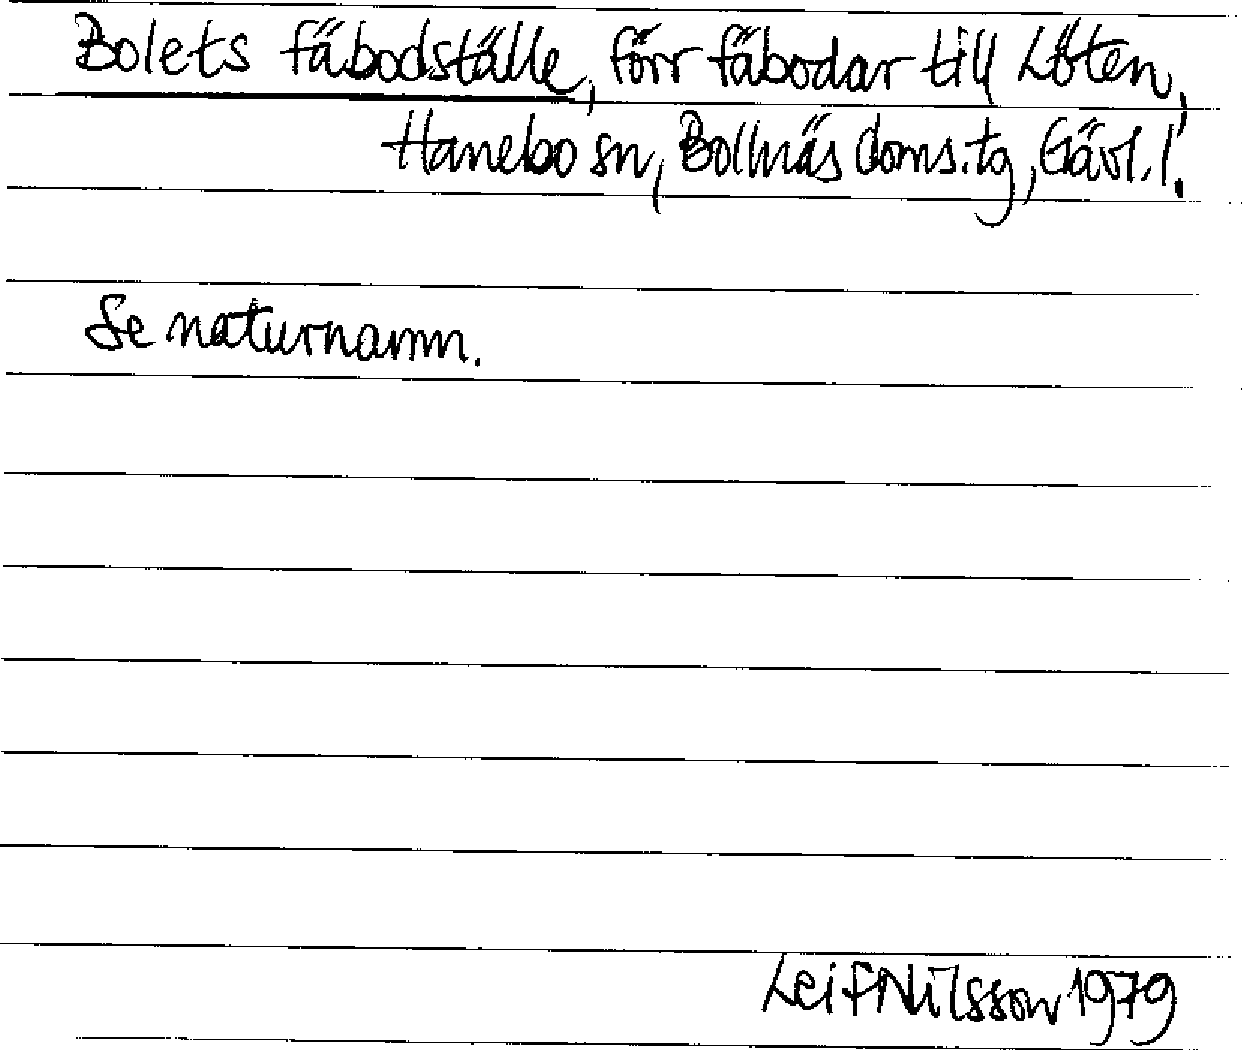 Bolets fäbodställe, förr fäbodar till Löten,
Hanebo sn, Bollnäs doms.tg, Gävl. l.
Se naturnamn.
Leif Nilsson 1979